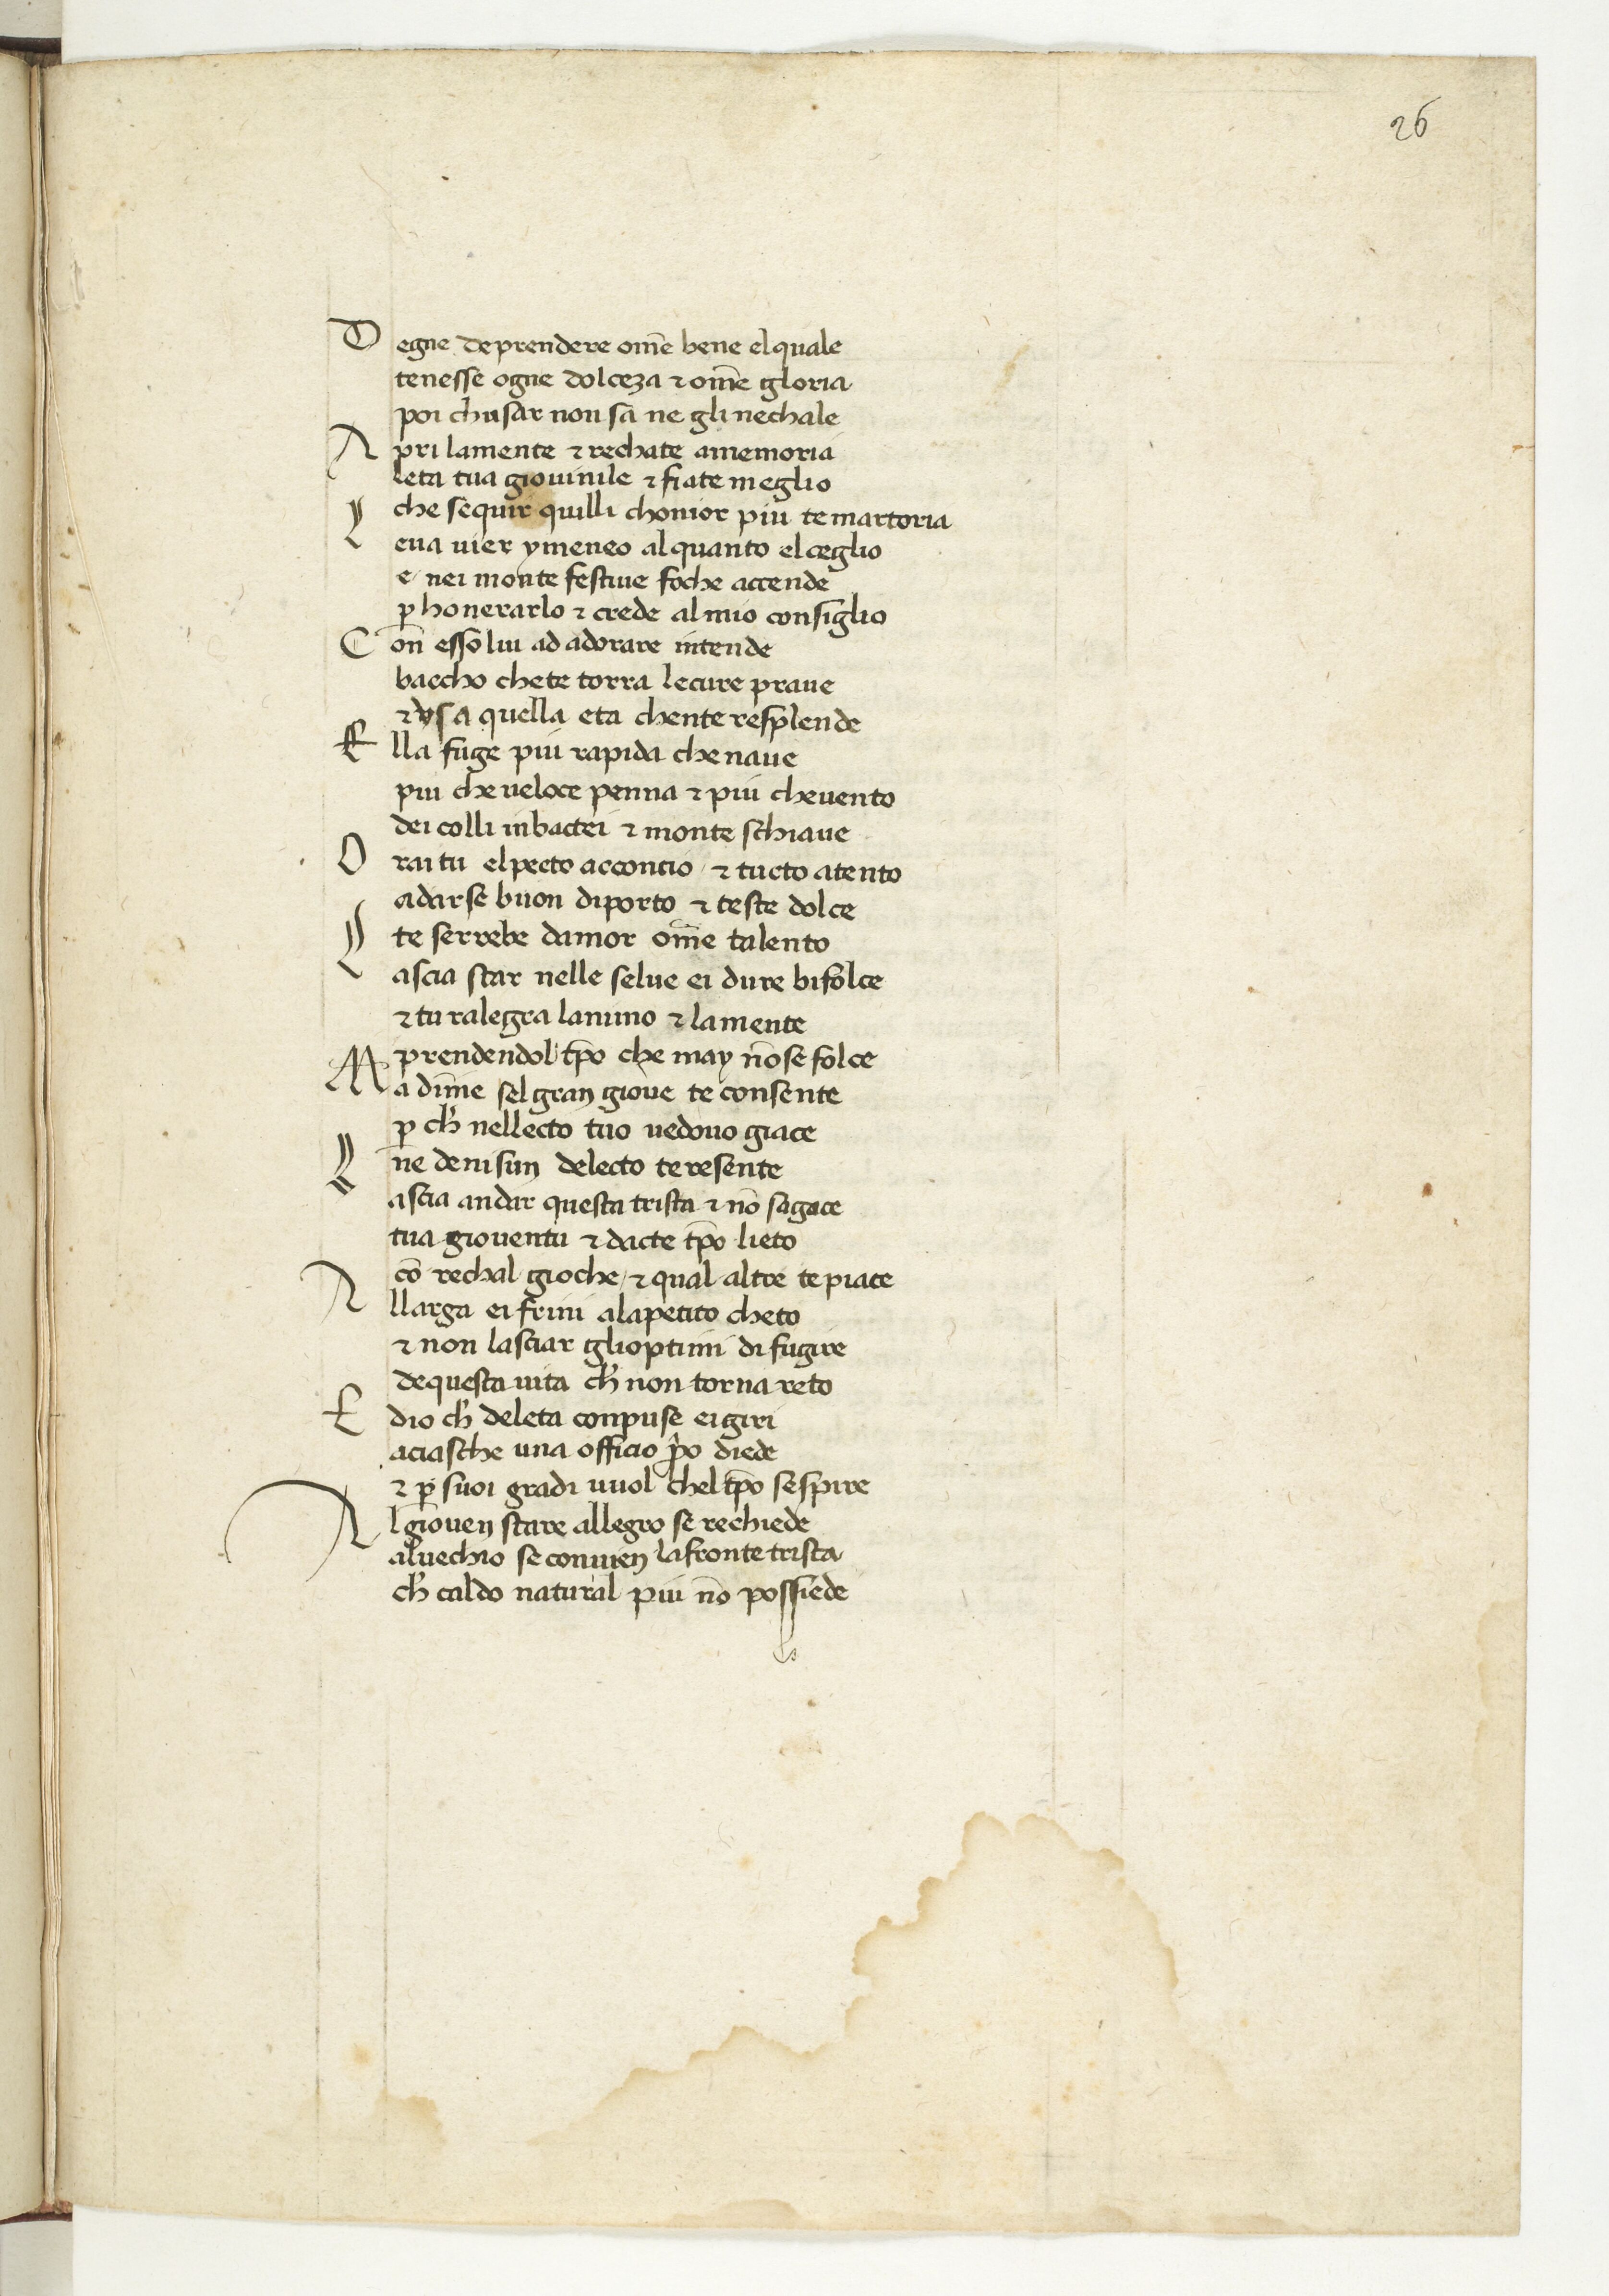 26
Degne de prendere om̄e bene el quale
tenesse ogne dolceza ⁊ om̄e gloria
poi chusar non sa ne gli ne chale
Apri lamente ⁊ rechate a memoria
leta tua giovinile ⁊ fiate meglio
che sequir quilli chonior piu te martoria
Leva uier ymeneo alquanto el ceglio
e nei monte festiue foche accende
p̱ honerarlo ⁊ crede al mio consiglio
Con esso lui ad adorare intende
baccho che te torra le cure praue
⁊ usa quella eta chente resplende
Ella fuge piu rapida che naue
piu che ueloce penna ⁊ piu che uento
dei colli inbactei ⁊ monte schiaue
Orai tu el pecto acconcio / ⁊ tucto atento
a darse buon diporto ⁊ teste dolce
te serrebe damor om̄e talento
Lascia star nelle selue ei dure bifolce
⁊ tu ralegra lanimo ⁊ la mente
prendendol tp̄o che may nō se folce
Ma dim̄e sel gran gioue te consente
p̱ ch̄ nel lecto tuo uedouo giace
ne de nisun delecto te resente
Lascia andar questa trista ⁊ nō sagace
tua giouentu ⁊ dacte tp̄o lieto
cō rechal gioche / ⁊ qual altre te piace
Allarga ei frini al apetito cheto
⁊ non lasciar gli optimi di fugire
de questa uita ch̄ non torna reto
E dio ch̄ de leta conpuse ei giri
aciasche una officio p̱o diede
⁊ p̱ suoi gradi uuol chel tp̄o se spire
Al giouen stare allegro se rechiede
al uechio se conuien la fronte trista
ch̄ caldo natural piu nō possiede